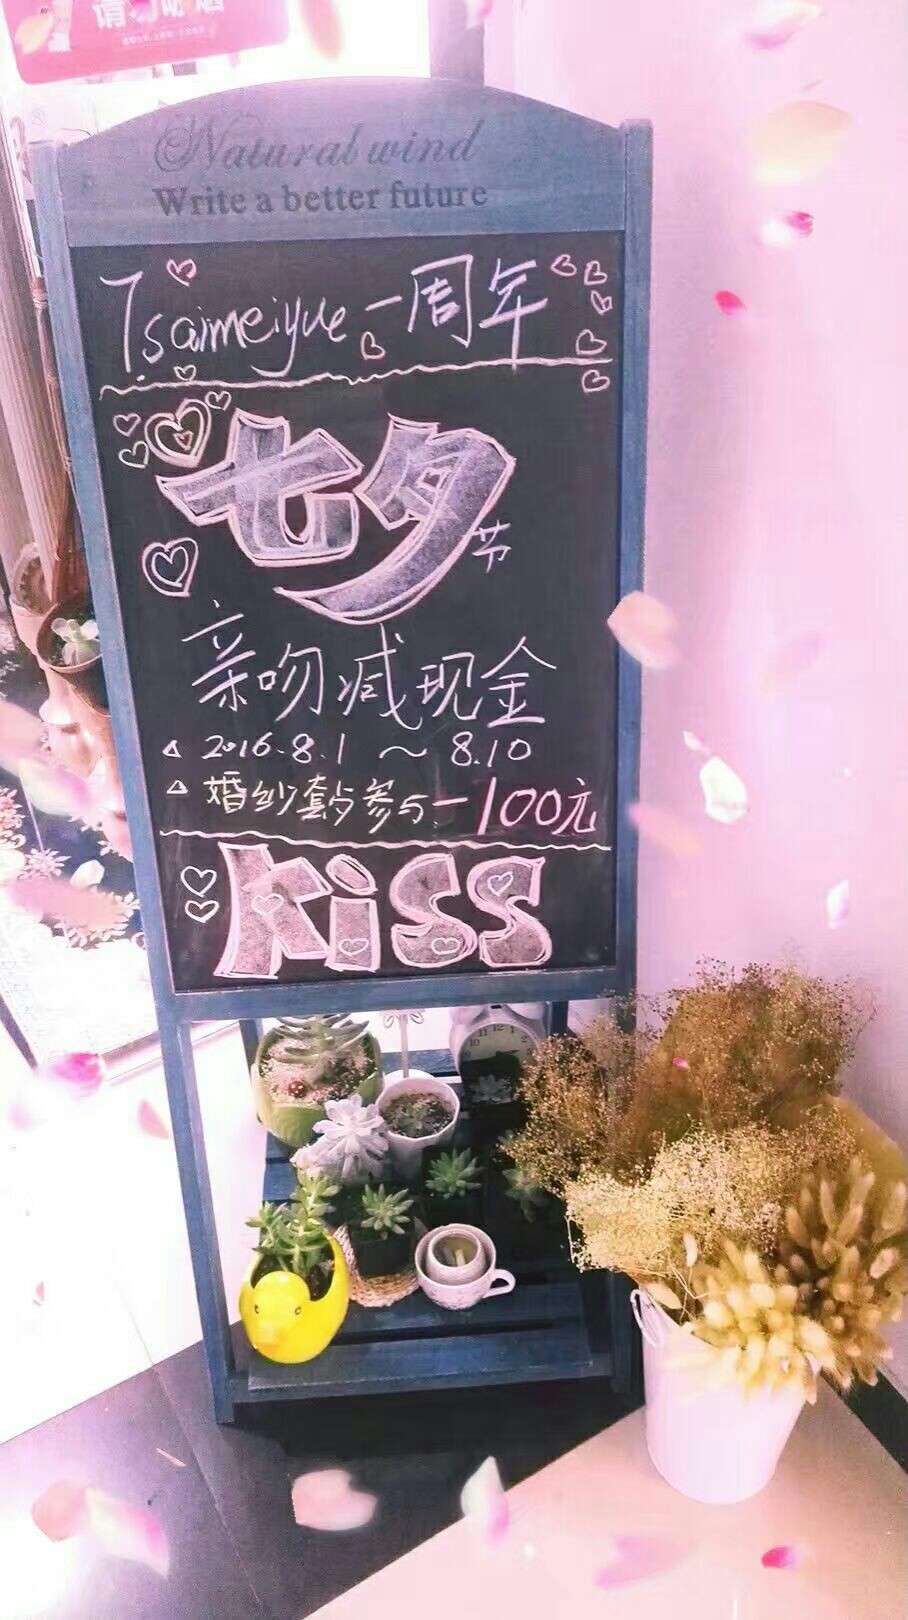 请勿吸烟
Natural wind
Write a better future
Tsaimeiyue 一周年
七夕节
亲吻减现金
△ 2016.8.1 ~ 8.10
△ 婚纱套夕参与-100元
kiss
10 11 12 1